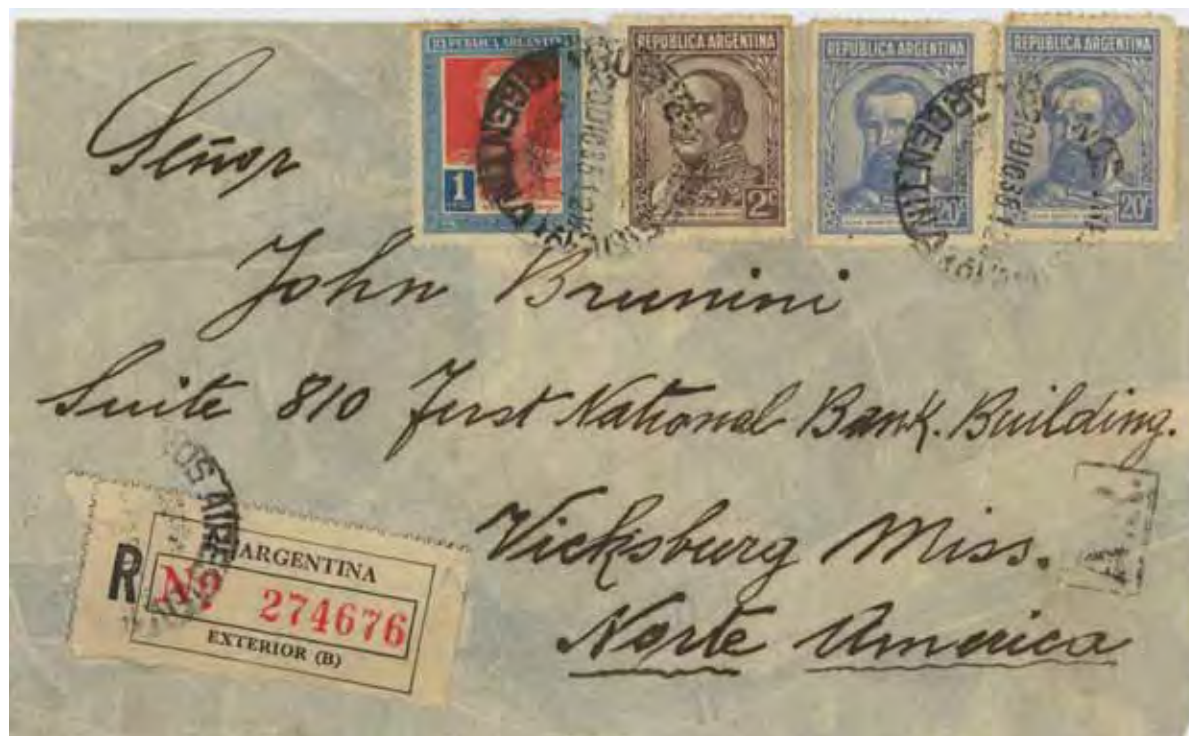 REPUBLICA ARGENTINA
REPUBLICA ARGENTINA
REPUBLICA ARGENTINA
REPUBLICA ARGENTINA
1
2c
20c
20c
ARGENTINA
ARGENTINA
20DIC36
Señor
John Brunini
Suite 810 First National Bank. Building.
Vicksburg Miss.
Norte America
AIRES
R
ARGENTINA
Nº 274676
EXTERIOR (B)